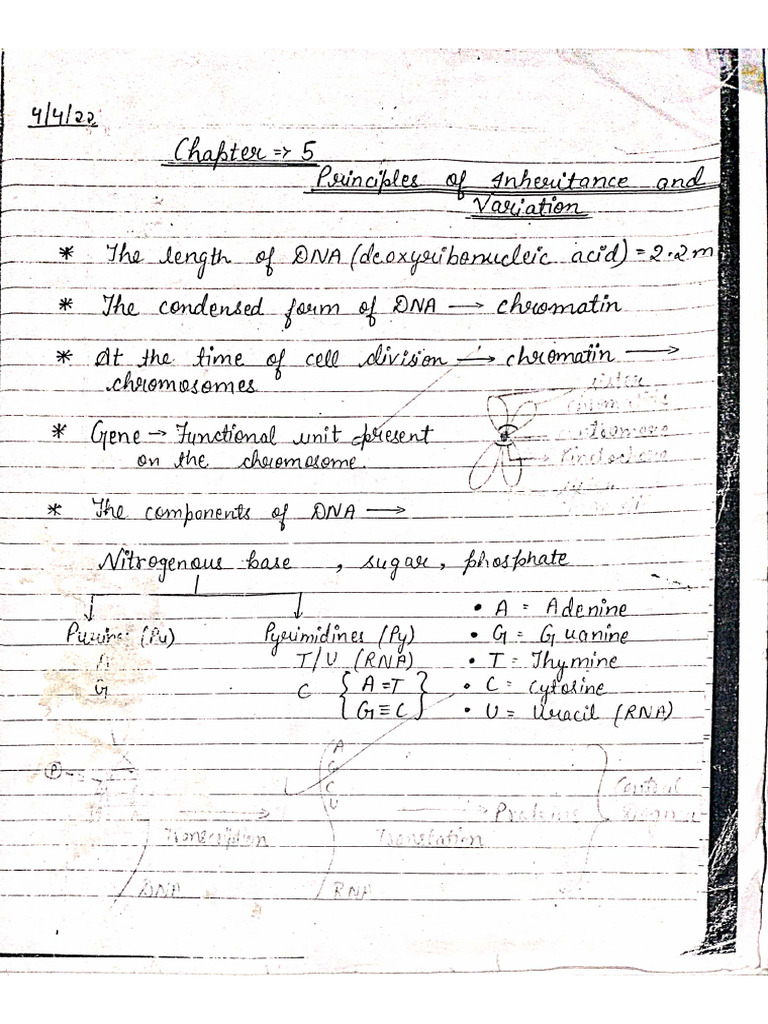 4/4/22
Chapter => 5
Principles of Inheritance and
Variation
* The length of DNA (deoxyribonucleic acid) = 2.2 m
* The condensed form of DNA → chromatin
* At the time of cell division → chromatin →
chromosomes
sister
chromatids
* Gene → Functional unit present
centromere
on the chromosome.
Kinetochore
* The components of DNA →
Nitrogenous base , sugar, phosphate
• A = Adenine
Purines (Pu) Pyrimidines (Py) • G = Guanine
A T/U (RNA) • T = Thymine
G C { A=T } • C = Cytosine
{ G≡C } • U = Uracil (RNA)
A
P G Central
C → Proteins Dogma
U
Transcription Translation
DNA RNA